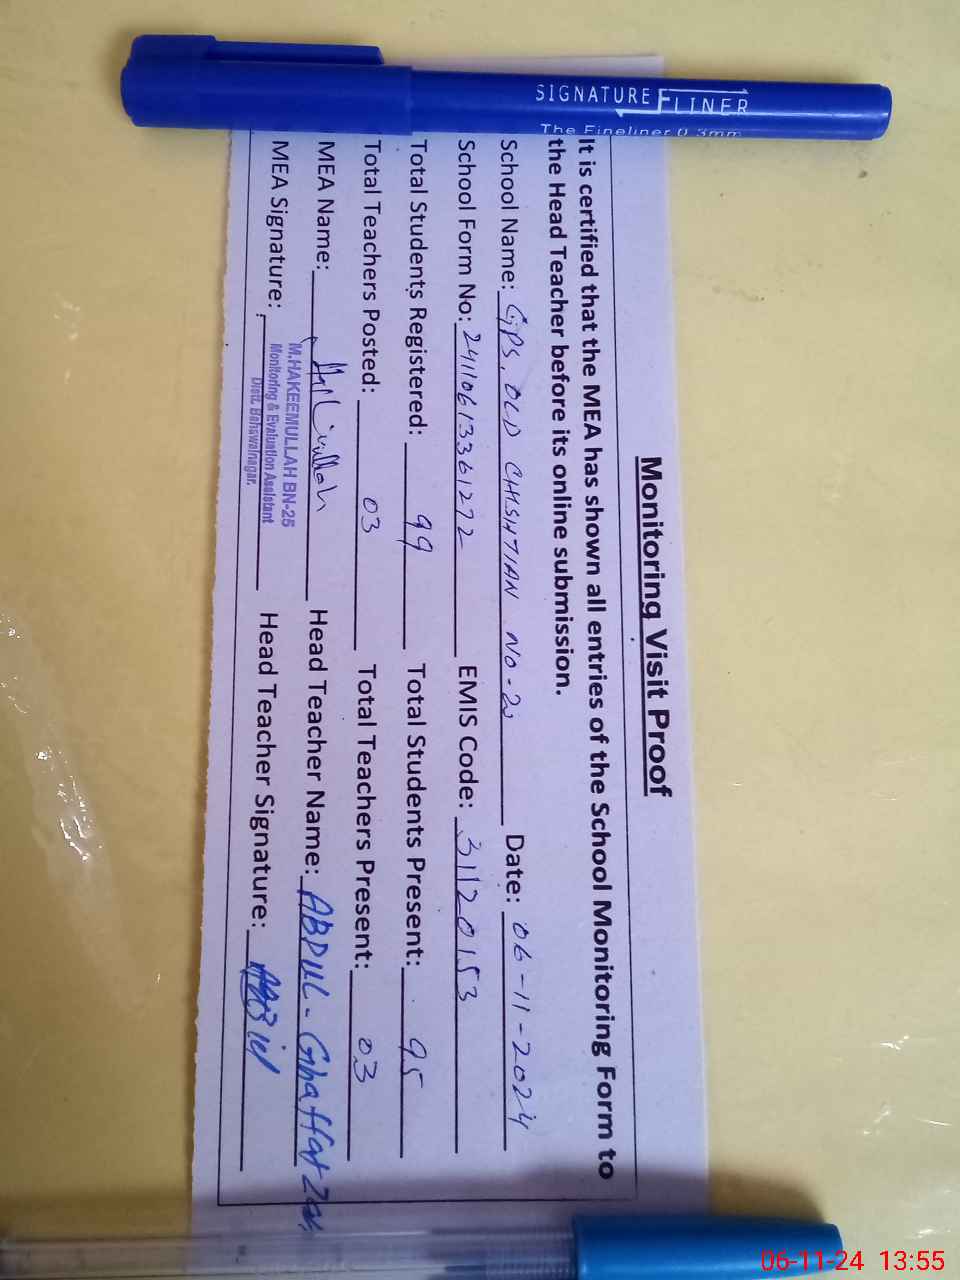 SIGNATURE FLINER
The Fineliner 0.3mm
Monitoring Visit Proof
It is certified that the MEA has shown all entries of the School Monitoring Form to
the Head Teacher before its online submission.
School Name: GPS, OLD CHISHTIAN No-2 Date: 06-11-2024
School Form No: 24110613361272 EMIS Code: 31120153
Total Students Registered: 99 Total Students Present: 95
Total Teachers Posted: 03 Total Teachers Present: 03
MEA Name: Head Teacher Name: ABDUL-Ghaffar
MEA Signature: Head Teacher Signature:
M.HAKEEMULLAH BN-25
Monitoring & Evaluation Assistant
Distt. Bahawalnagar.
06-11-24 13:55